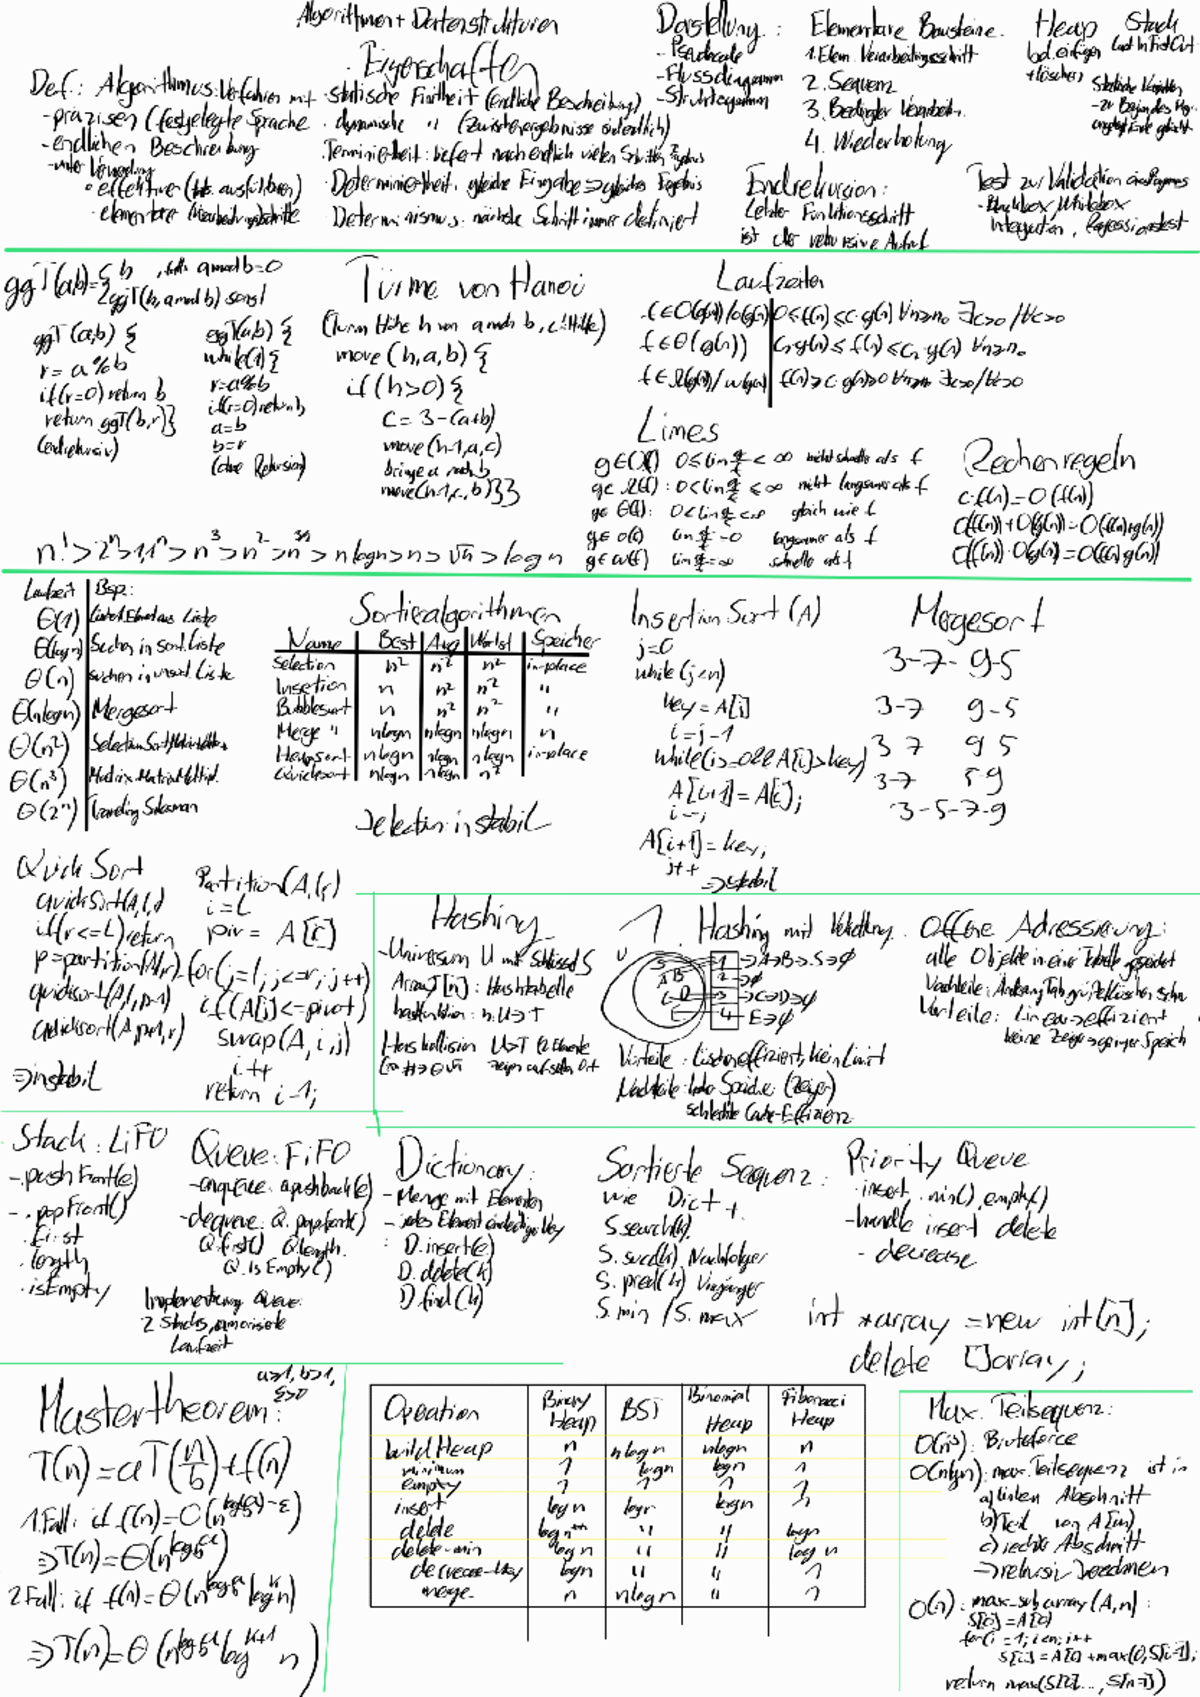 Algorithmen + Datenstrukturen
Def.: Algorithmus: Verfahren mit
- präzisen (festgelegte Sprache
- endlichen Beschreibung
- unter Verwendung
• effektiver (tats. ausführbaren)
• elementarer Verarbeitungsschritte
Eigenschaften
· statische Finitheit (endliche Beschreibung)
· dynamische " (zwischenergebnisse endlich)
· Terminiertheit: liefert nach endlich vielen Schritten Ergebnis
· Determiniertheit: gleiche Eingabe => gleiches Ergebnis
· Determinismus: nächste Schritt immer definiert
Darstellung:
- Pseudocode
- Flussdiagramm
- Struktogramm
Elementare Bausteine:
1. Elem. Verarbeitungsschritt
2. Sequenz
3. Bedingter Verarbeit.
4. Wiederholung
Heap
bel. einfügen
+ löschen
Stack
Last In First Out
Statische Variablen
Endrekursion:
Letzter Funktionsschritt
ist der rekursive Aufruf
Test zur Validation
- Blackbox, Whitebox
Integration, Regressionstest
ggT(a,b) = { b , falls a mod b = 0
ggT(b, a mod b) sonst
ggT(a,b) {
r = a % b
if(r=0) return b
return ggT(b,r)}
(endrekursiv)
ggT(a,b) {
while(1){
r=a%b
if(r=0) return b
a=b
b=r
(ohne Rekursion)
Türme von Hanoi
(Turm Höhe h von a nach b, c Hilfe)
move (h,a,b) {
if (h>0) {
c = 3-(a+b)
move(h-1,a,c)
bringe a nach b
move(h-1,c,b)}}
n! > 2^n > 1,1^n > n^3 > n^2 > n^3/2 > n log n > n > √n > log n
Laufzeiten
f ∈ O(g(n))/o(g(n)) | 0≤f(n)≤c·g(n) ∀n>n₀ ∃c>0/∀c>0
f ∈ Θ(g(n)) | c₁g(n) ≤ f(n) ≤ c₂·g(n) ∀n>n₀
f ∈ Ω(g(n))/ω(g(n)) | f(n)≥c·g(n)>0 ∀n>n₀ ∃c>0/∀c>0
Limes
g ∈ O(f) 0 ≤ lim g/f < ∞ nicht schneller als f
g ∈ Ω(f): 0 < lim g/f ≤ ∞ nicht langsamer als f
g ∈ Θ(f): 0 < lim g/f < ∞ gleich wie f
g ∈ o(f) lim g/f = 0 langsamer als f
g ∈ ω(f) lim g/f = ∞ schneller als f
Rechenregeln
c·f(n) = O(f(n))
O(f(n)) + O(g(n)) = O(f(n)+g(n))
O(f(n)) · O(g(n)) = O(f(n)·g(n))
Laufzeit | Bsp.:
Θ(1)
Θ(log n) | Suchen in sort. Liste
Θ(n) | suchen in unsort. Liste
Θ(n log n) | Mergesort
Θ(n²) | Selection Sort
Θ(n³)
Θ(2^n) | Traveling Salesman
Sortieralgorithmen
Name | Best | Avg | Worst | Speicher
Selection n² n² n² in-place
Insertion n n² n² "
Bubblesort n n² n² "
Merge " nlogn nlogn nlogn n
Heapsort nlogn nlogn nlogn in-place
Quicksort nlogn nlogn n²
Selection instabil
Insertion Sort (A)
j=0
while(j<n)
key = A[j]
i=j-1
while(i>=0 && A[i]>key)
A[i+1] = A[i];
i--;
A[i+1] = key;
j++
=> stabil
Mergesort
3-7-9-5
3-7 9-5
3 7 9 5
3-7 5 9
3-5-7-9
Quick Sort
quickSort(A,l,r)
if(r<=l) return
p=partition(A,l,r)
quicksort(A,l,p-1)
quicksort(A,p+1,r)
=> instabil
Partition(A,l,r)
i=L
piv = A[r]
for(j=l; j<=r; j++)
if(A[j]<=pivot)
swap(A,i,j)
i++
return i-1;
Hashing
- Universum U mit Schlüssel S
Array T[n]: Hashtabelle
hashfunktion: h: U→T
Hashkollision
1. Hashing mit Verkettung
U
S
A B
C D
E
1 → A→B→S→∅
2 → ∅
3 → C→D→∅
4 E→∅
Vorteile: Löschen effizient, kein Limit
Nachteile: hohe Speicher (Zeiger)
schlechte Cache-Effizienz
Offene Adressierung:
alle Objekte in einer Tabelle gespeichert
Vorteile: Linear → effizient
keine Zeiger → geringer Speich
Stack: LiFO
- .pushFront(e)
- .popFront()
.first
.length
.isEmpty
Queue: FiFO
- enqueue: Q.pushback(e)
- dequeue: Q.popfront()
Q.first() Q.length
Q.isEmpty()
Implementierung Queue:
2 Stacks, amortisierte
Laufzeit
Dictionary:
- Menge mit Elementen
- jedes Element eindeutiger Key
: D.insert(e)
D.delete(k)
D.find(k)
Sortierte Sequenz:
wie Dict +
S.search(k)
S.succ(k) Nachfolger
S.pred(k) Vorgänger
S.min / S.max
Priority Queue
· insert, .min(), empty()
- handle insert delete
- decrease
int *array = new int[n];
delete []array;
Mastertheorem:
a≥1, b>1,
ε>0
T(n) = aT(n/b) + f(n)
1. Fall: if f(n) = O(n^(log_b(a)-ε))
=> T(n) = Θ(n^log_b a)
2. Fall: if f(n) = Θ(n^log_b a log^k n)
=> T(n) = Θ(n^log_b a log^(k+1) n)
Operation | Binary Heap | BST | Binomial Heap | Fibonacci Heap
buildHeap n nlogn nlogn n
minimum 1 logn logn 1
empty 1 1 1 1
insert logn logn logn 1
delete logn** " " logn
delete-min logn " " logn
decrease-key logn " " 1
merge n nlogn " 1
Max. Teilsequenz:
O(n³): Bruteforce
O(nlogn): max. Teilsequenz ist in
a) linken Abschnitt
b) Teil von A[m]
c) rechte Abschnitt
→ rekursiv berechnen
O(n): max-subarray(A,n):
S[0] = A[0]
for(i=1; i<n; i++
S[i] = A[i] + max(0,S[i-1];
return max(S[0]..., S[n-1])